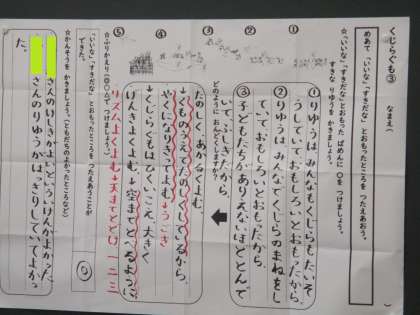 くじらぐも③　なまえ（　　　　）
めあて「いいな」「すきだな」とおもったところを つたえあおう。
☆「いいな」「すきだな」とおもった ばめんに ○を つけましょう。
すきな りゆうを かきましょう。
①
②
③
④
⑤
①りゆうは、みんなもくじらもたいそ
うしていておもしろいとおもったから。
②りゆうは、みんなでくじらのまねをし
ていて、おもしろいとおもったから。
③子どもたちが、ありえないほどとんで
いて、ふしぎだから。
どのように おんどくしますか？
たのしく、あかるくよむ。
↓くものうえでたのしくしているから。
やくになりきってよむ。↓うごき
↓くじらぐもはひくいこえ、大きく
げんきよくよむ。↓空までとどくように
リズムよくよむ↓天までとどけ一二三
☆ふりかえり（◎○△で つけましょう。）
「いいな」「すきだな」とおもったところを つたえあうことが
できた。
◎
☆かんそうを かきましょう。（ともだちのよかったところなど）
さんのいしきがよいといういけんがよかった。
さんのりゆうがはっきりしていてよかっ
た。